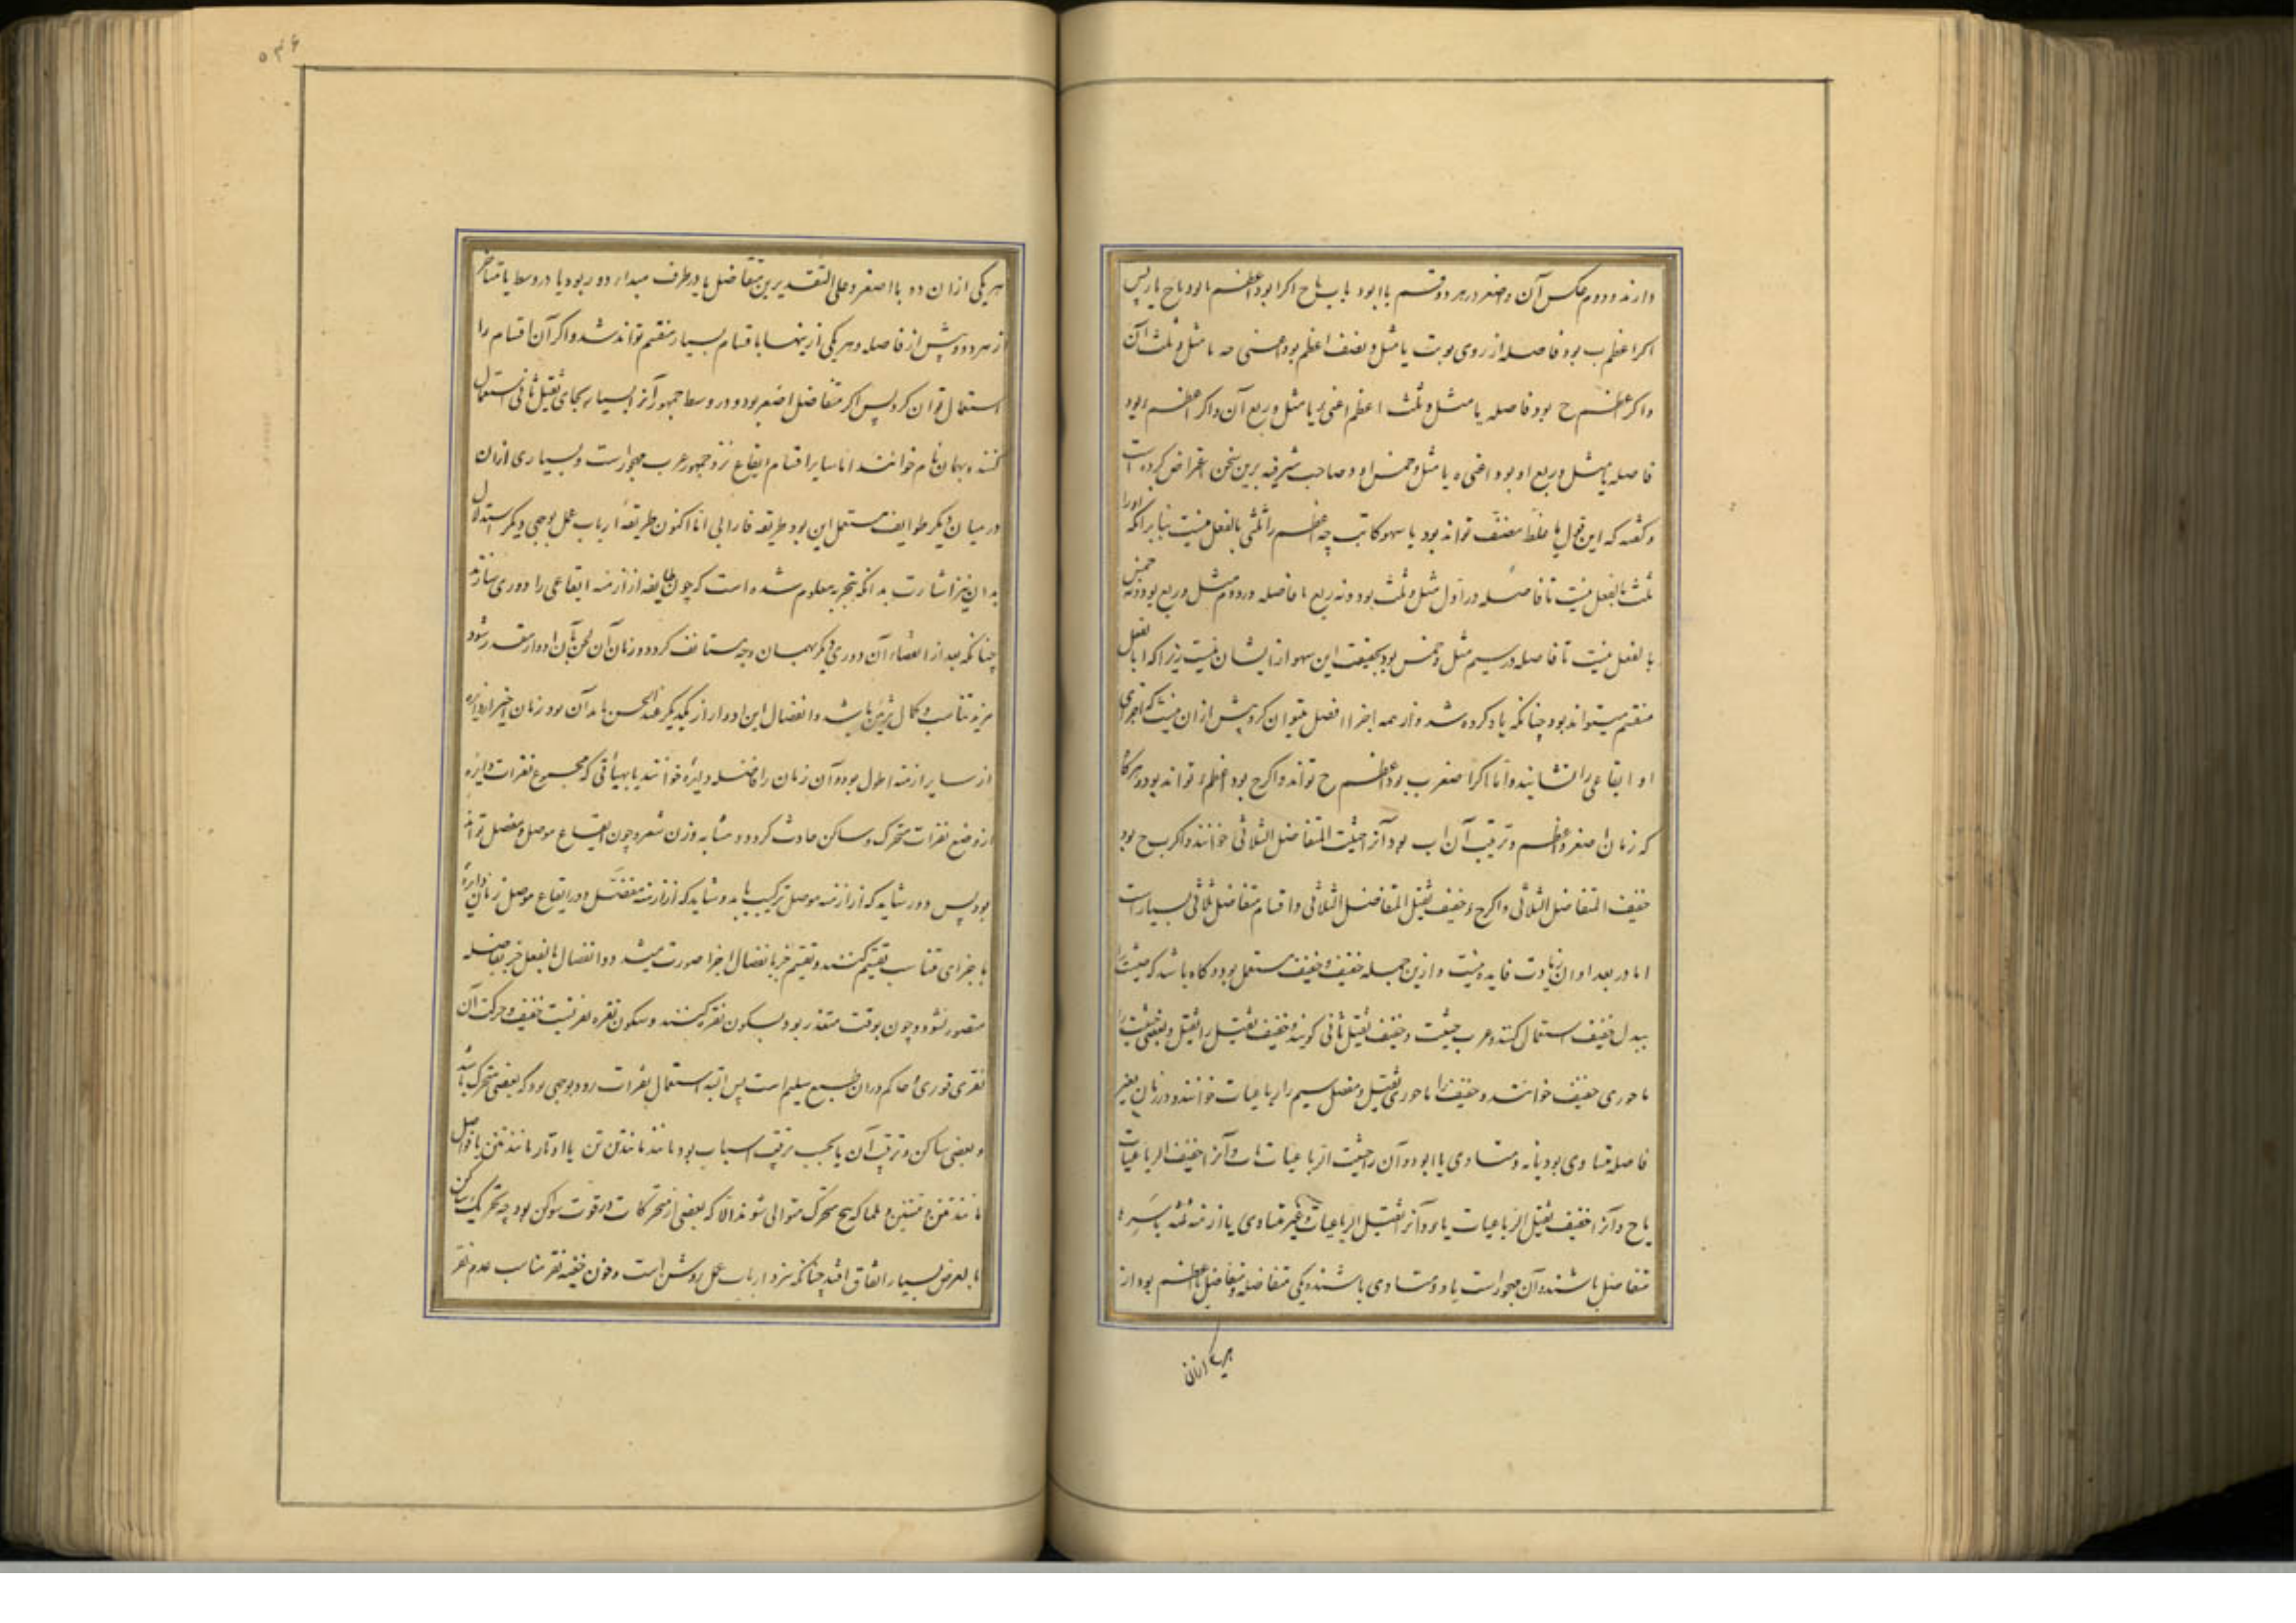 دارند و دوم عکس آن و اصغر در هر دو قسم یا ا بود یا ب یا ح اگر ا بود اعظم یا بود یا ح یا پس
اگر اعظم ب بود فاصله از روی یا مثل و نصف اعظم بود اعنی یا مثل و ثلث آن
و اگر اعظم ح بود فاصله یا مثل و ثلث اعظم اعنی یا مثل و ربع آن و اگر اعظم بود
فاصله یا مثل و ربع او بود اعنی ه یا مثل و خمس او و صاحب شرفیه برین سخن اعتراض کرده است
و گفته که این قول یا غلط مصنف تواند بود یا سهو کاتب چه اعظم را ثلثی بالفعل نیست بنابر آنکه او را
ثلث بالفعل نیست تا فاصله در اول مثل و ثلث بود و نه ربع تا فاصله در دوم مثل و ربع بود و نه خمس
بالفعل نیست تا فاصله در سیم مثل و خمس بود بحقیقت این سهو از ایشان نیست زیرا که ا بالفعل
منقسم میتواند بود چنانکه یاد کرده شد و از همه اجزا ا فصل میتوان کرد بیش از آن نیست که اجزای
او ایقاعی را نشایند و اما اگر اصغر ب بود اعظم ح تواند و اگر ح بود اعظم تواند بود و هرگاه
که زمان اصغر و اعظم و ترتیب آن ا ب بود آنرا حثیث المتفاضل الثلاثی خوانند و اگر ب ح بود
خفیف المتفاضل الثلاثی و اگر ح خفیف ثقیل المتفاضل الثلاثی و اقسام متفاضل ثلاثی بسیار است
اما در بعد او ان زیادت فایده نیست و ازین جمله خفیف و خفیف مستعمل بود و گاه باشد که حثیث را
ببدل خفیف استعمال کنند و عرب حثیث و خفیف ثقیل ثانی گویند و خفیف ثقیل را ثقیل و بعضی حثیث را
ماخوری خفیف خوانند و خفیف را ماخوری ثقیل و مفصل سیم را رباعیات خوانند و در زمان بغیر
فاصله متساوی بود یا نه و متساوی یا ا بود و آن را حثیث الرباعیات یا ب و آنرا خفیف الرباعیات
یا ح و آنرا خفیف ثقیل الرباعیات یا بود و آنرا ثقیل الرباعیات و غیر متساوی یا ازمنه ثلثه باسره
متفاضل باشند و آن مهجور است یا دو متساوی باشند و یکی متفاضله و متفاضل یا اعظم بود از
هر یک از آن
۵۳۶
هر یکی از آن دو یا اصغر و علی التقدیرین متفاضل یا در طرف مبداء دور بود یا در وسط یا متأخر
از هر دو و پیش از فاصله و هر یکی ازینها باقسام بسیار منقسم تواند شد و اگر آن اقسام را
استعمال توان کرد پس اگر متفاضل اصغر بود و در وسط جمهور آنرا بسیار بجای ثقیل ثانی استعمال
کنند و بهمان نام خوانند اما سایر اقسام ایقاع نزد جمهور عرب مهجور است و بسیاری از آن
در میان دیگر طوایف مستعمل این بود طریقه فارابی اما اکنون طریقهٔ ارباب عمل بوجهی دیگر استدلال
بدان نیز اشارت بدانکه بتجربه معلوم شده است که چون طایفه از ازمنه ایقاعی را دوری سازند
چنانکه بعد از انقضاء آن دوری دیگر بهمان وجه مستانف گردد و زمان آن لحن بآن ادوار مقدر شود
مزید تناسب و کمال تزیین باشد و انفصال این ادوار از یکدیگر عند الحس یا بدان بود زمان اخیر از دایره
از سایر ازمنه اطول بود و آن زمان را فاصله دایره خوانند یا بهیأتی که مجموع نقرات دایره
از وضع نقرات متحرک و ساکن حادث گردد و مشابه وزن شعر و چون ایقاع موصل و مفصل تواند
بود پس دور شاید که از ازمنه موصل ترکیب یابد و شاید که از ازمنه مفصل و در ایقاع موصل زمان دایره
باجزای متناسب تقسیم کنند و تقسیم جز بانفصال اجزا صورت نبندد و انفصال بالفعل جز بفاصله
متصور نشود و چون بوقت متعذر بود بسکون نقره کنند و سکون نقره نقریست خفیف و حرکت آن
نقری قوری و حاکم در آن طبع سلیم است پس البته استعمال نقرات رود بوجهی بود که بعضی متحرک باشد
و بعضی ساکن و ترتیب آن یا بحسب ترتیب اسباب بود مانند تن تن یا اوتاد مانند تنن یا فواصل
مانند تننن و تنننن و لما که هیچ متحرک متوالی شوند الا که بعضی از متحرکات در قوت سواکن بود چه تحریک ساکن
بالعرض بسیار اتفاق افتد چنانکه نزد ارباب عمل روشن است و چون خفیفه نقر مناسب عدم نقر